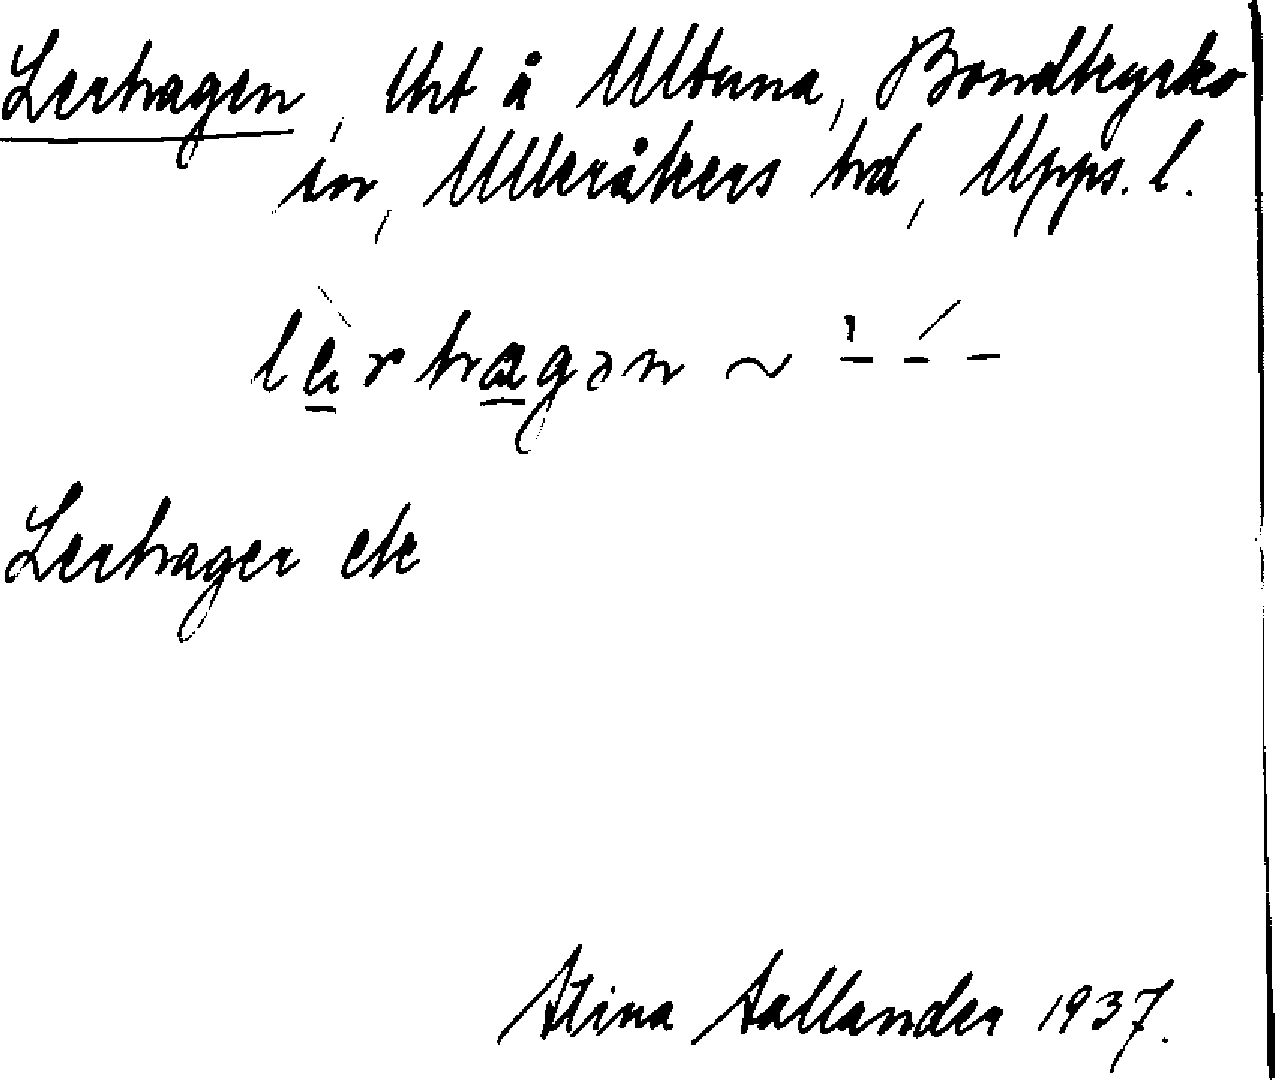 Lerhagen, th't å Ultuna, Bondkyrko
sn, Ulleråkers hd, Upps. l.
lèrhagən ~ ' – ´ –
Lerhagen ek
Stina Sallander 1937.